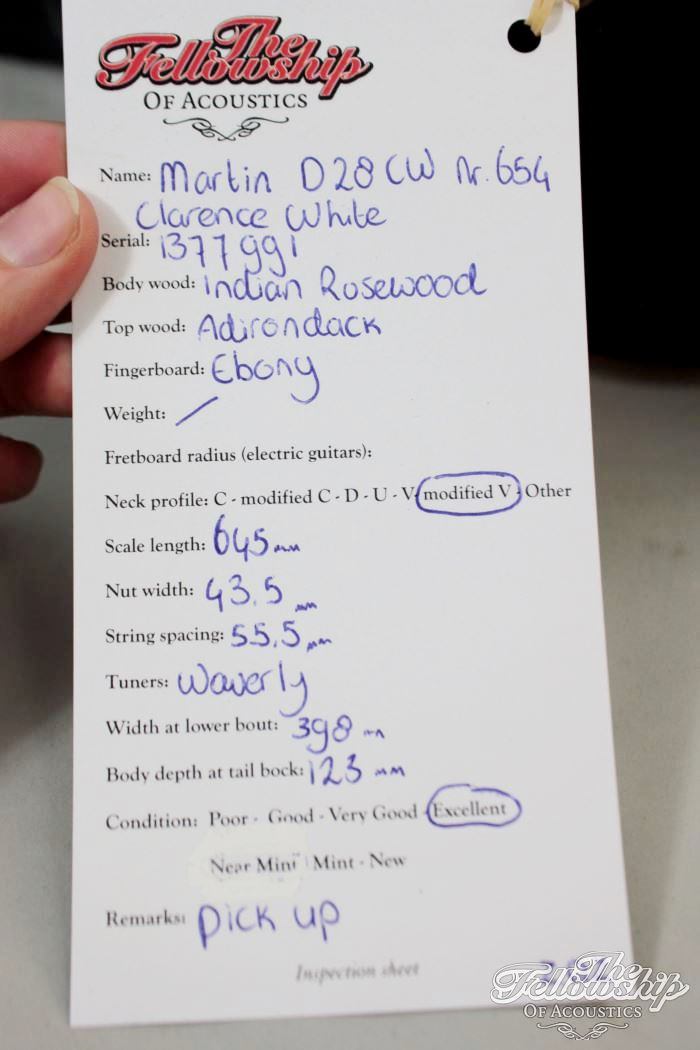 The
Fellowship
OF ACOUSTICS
Name: Martin D28 CW Nr. 654
Clarence White
Serial: 1377991
Body wood: Indian Rosewood
Top wood: Adirondack
Fingerboard: Ebony
Weight: /
Fretboard radius (electric guitars):
Neck profile: C - modified C - D - U - V - modified V - Other
Scale length: 645 mm
Nut width: 43.5 mm
String spacing: 55,5 mm
Tuners: Waverly
Width at lower bout: 398 mm
Body depth at tail bock: 123 mm
Condition: Poor - Good - Very Good - Excellent
Near Mint Mint - New
Remarks: pick up
Inspection sheet
The
Fellowship
OF ACOUSTICS